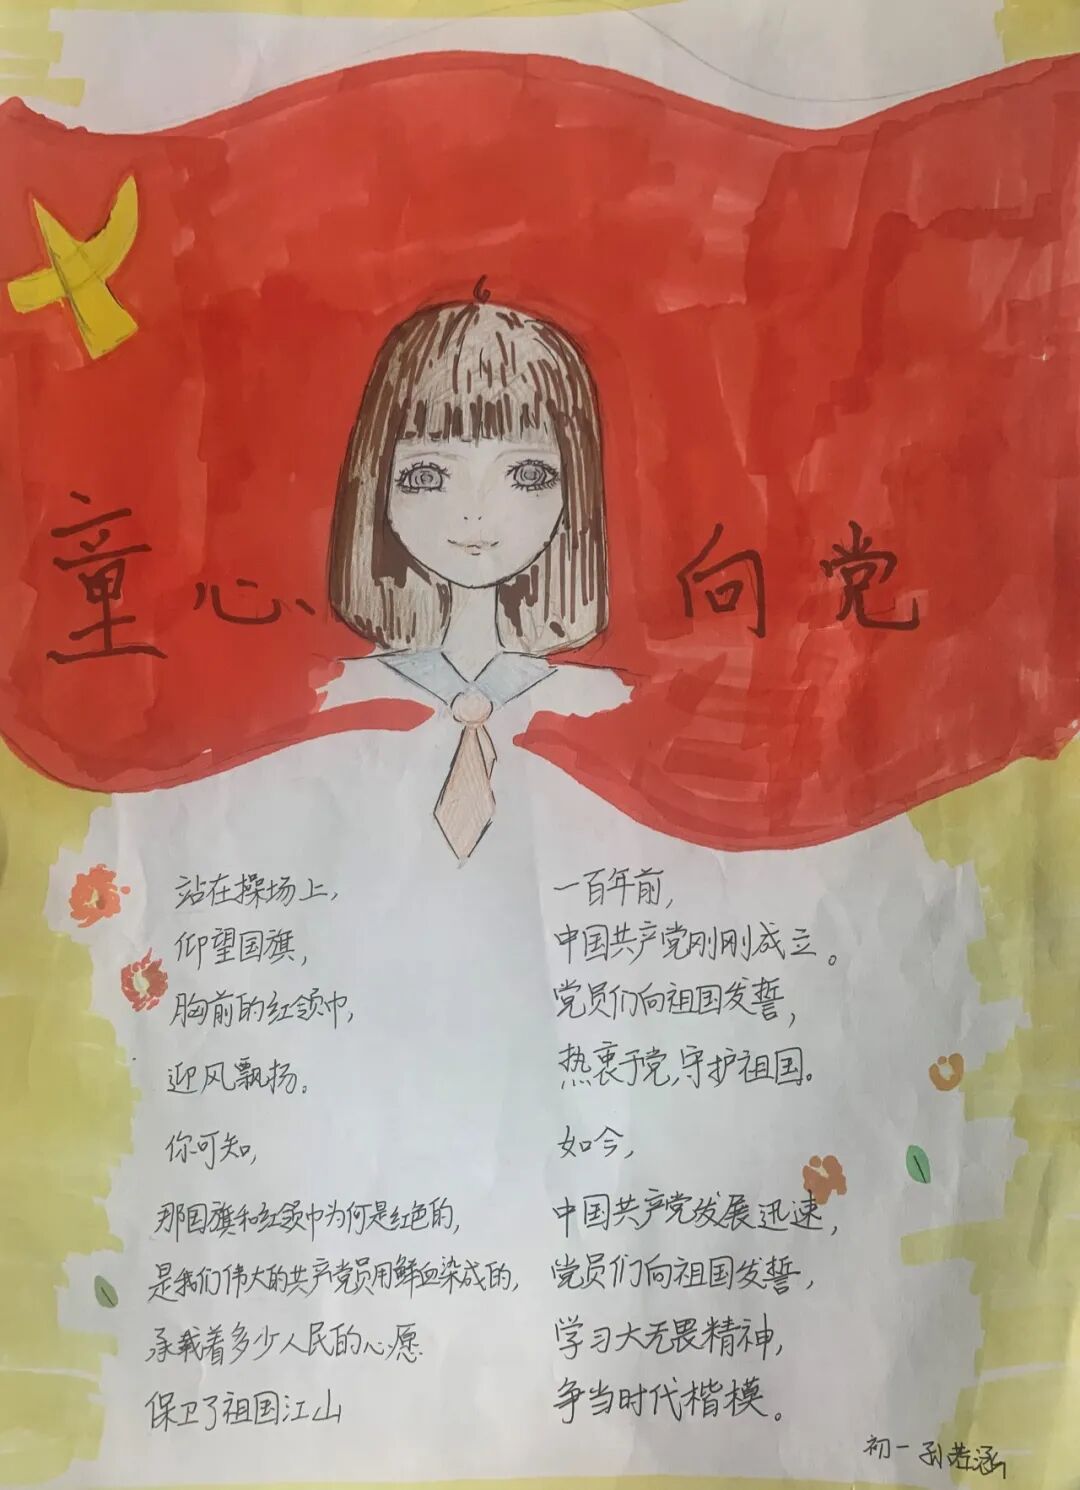 童心向党
站在操场上,
仰望国旗,
胸前的红领巾,
迎风飘扬。
你可知,
那国旗和红领巾为何是红色的,
是我们伟大的共产党员用鲜血染成的,
承载着多少人民的心愿
保卫了祖国江山
一百年前,
中国共产党刚刚成立。
党员们向祖国发誓,
热衷于党,守护祖国。
如今,
中国共产党发展迅速,
党员们向祖国发誓,
学习大无畏精神,
争当时代楷模。
初一 孙若涵